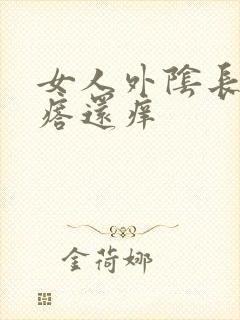 女人外陰長
痞還痒
金荷娜